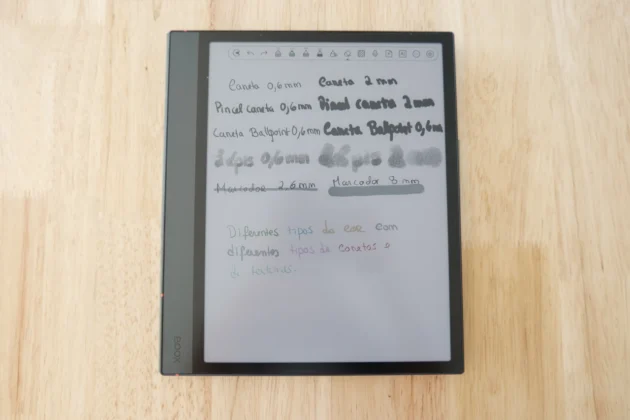 Caneta 0,6mm Caneta 2 mm
Pincel caneta 0,6mm Pincel caneta 2mm
Caneta Ballpoint 0,6mm Caneta Ballpoint 0,6m
Lápis 0,6mm
Marcador 2.6mm Marcador 8mm
Diferentes tipos de cor com
diferentes tipos de canetas e
BOOX